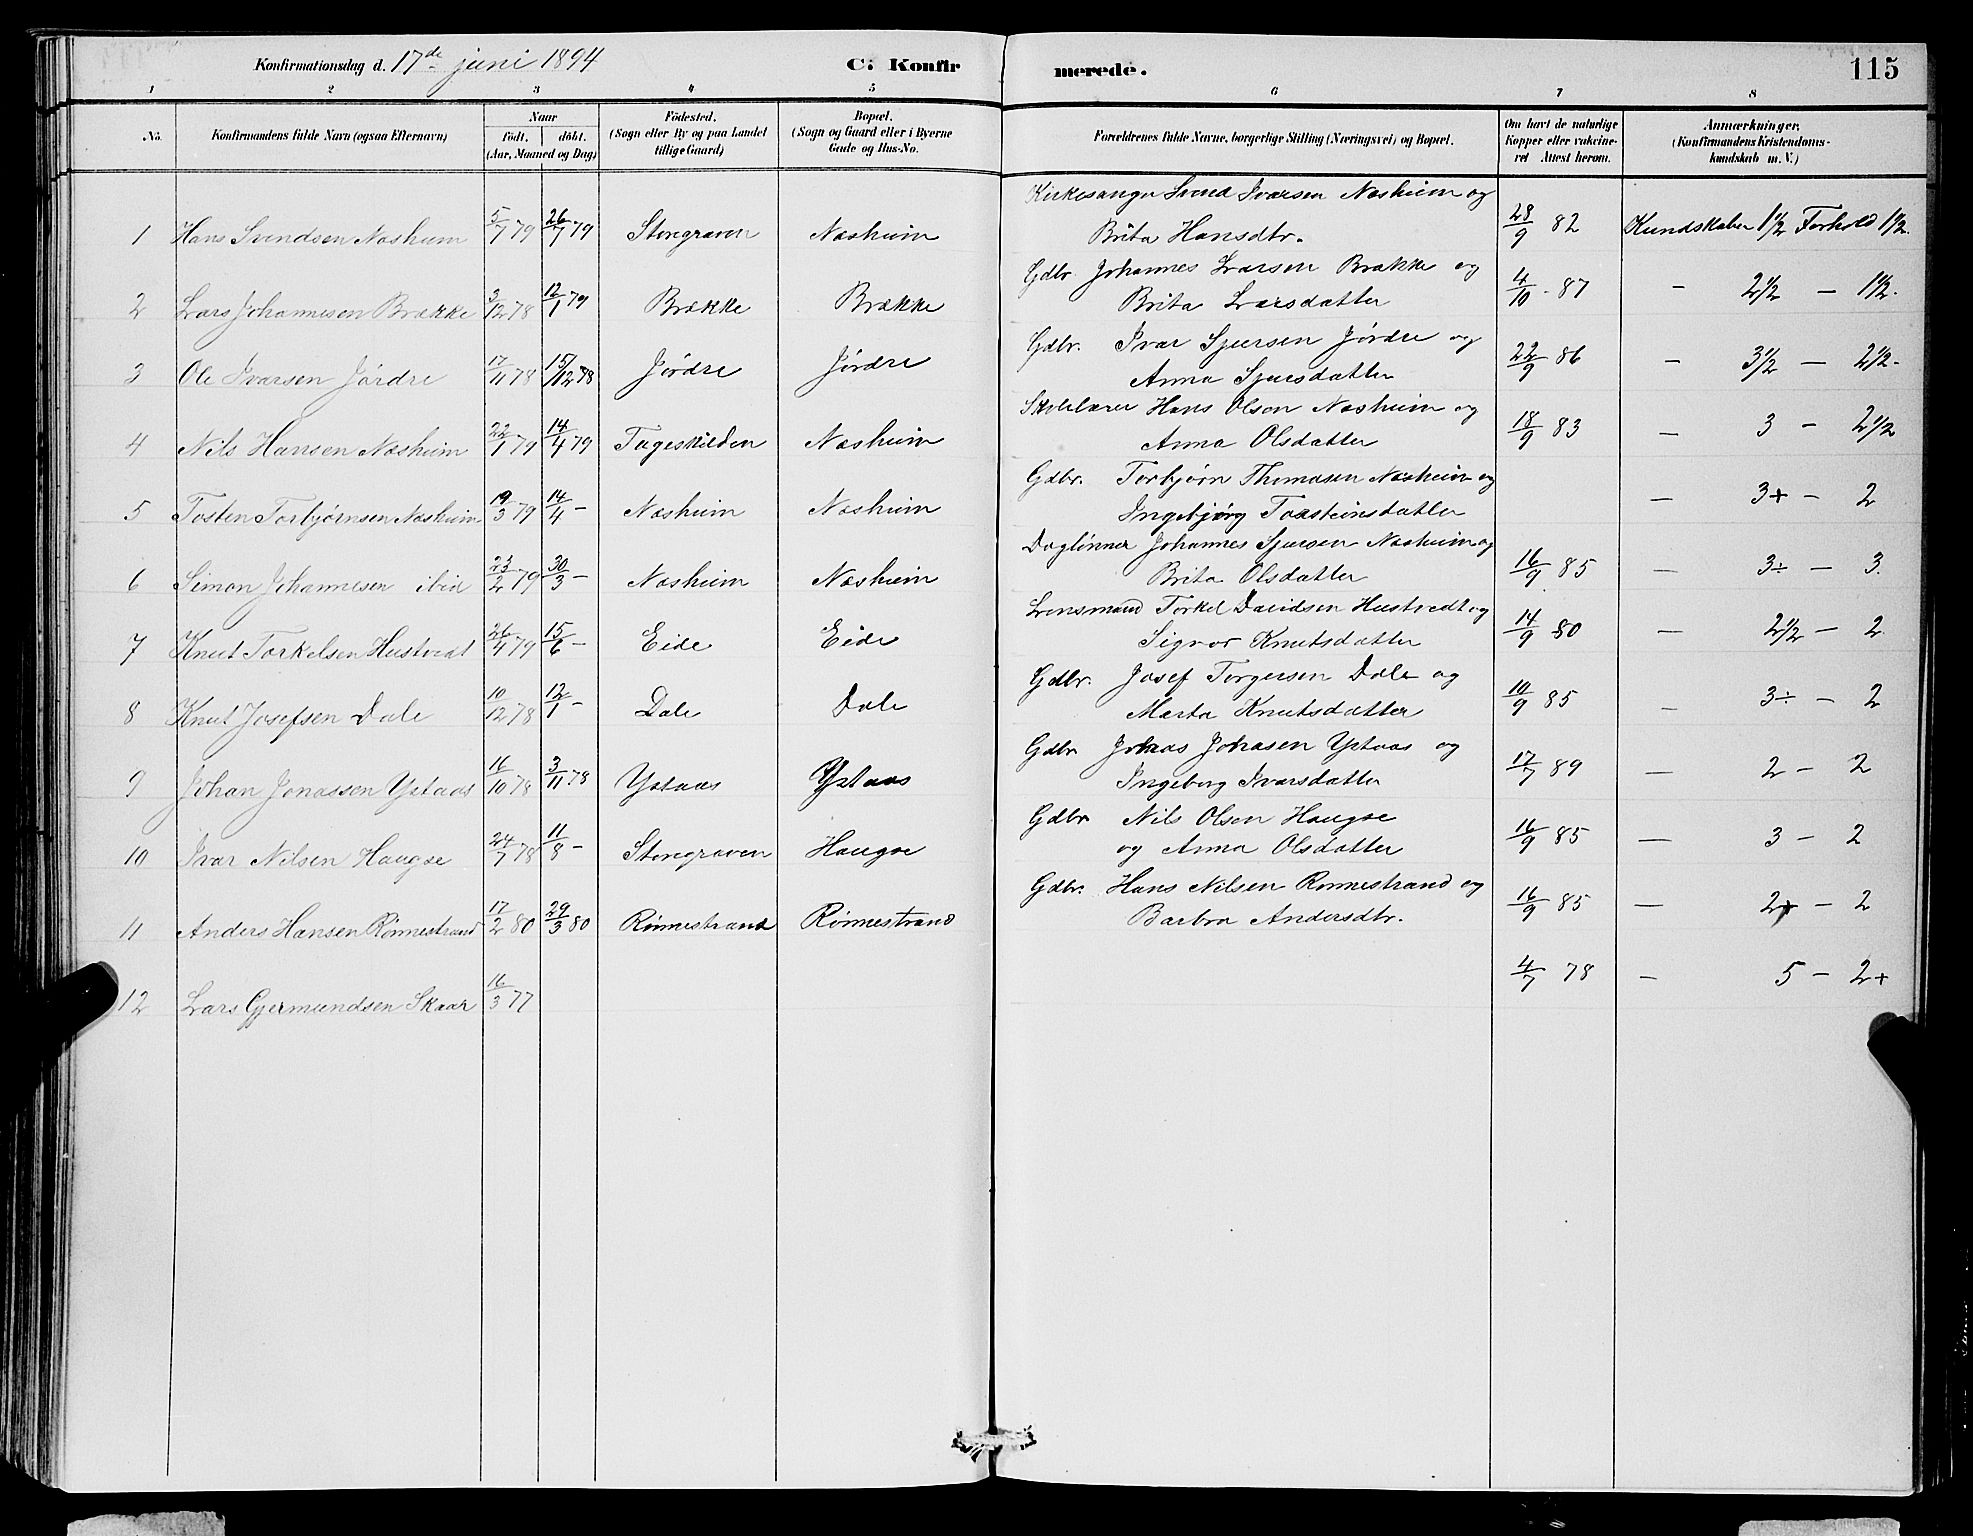 Konfirmationsdag d. 17de juni 1894 C. Konfirmerede. 115
1 2 3 4 5 6 7 8
No. Konfirmandens fulde Navn (ogsaa Efternavn) Naar født. døbt. (Aar, Maaned og Dag) Födested. (Sogn eller By og paa Landet tillige Gaard) Bopæl. (Sogn og Gaard eller i Byerne Gade og Hus-No. Forældrenes fulde Navne, borgerlige Stilling (Næringsvei) og Bopæl. Om havt de naturlige Kopper eller vakcineret Attest herom. Anmærkninger. (Konfirmandens Kristendomskundskab m. V.)
Kirkesanger Svend Ivarsen Næsheim og
1 Hans Svendsen Næsheim 5/7 79 26/7 79 Stengraven Næsheim Brita Hansdtr. 28/9 82 Kundskaber 1½ Forhold 1½.
Gdbr. Johannes Larsen Brække og
2 Lars Johannesen Brække 3/12 78 12/1 79 Brække Brække Brita Larsdatter 4/10 - 87 - 2½ - 1½.
Gdbr. Ivar Sjursen Jørdre og
3 Ole Ivarsen Jørdre 17/11 78 15/12 78 Jørdre Jørdre Anna Sjursdatter 22/9 86 - 3½ - 2½.
Skolelærer Hans Olson Næsheim og
4 Nils Hansen Næsheim 22/1 79 14/4 79 Næsheim Anna Olsdatter 18/9 83 - 3 - 2½
Gdbr. Torbjørn Thomasen Næsheim og
5 Tosten Torbjørnsen Næsheim 19/3 79 14/4 - Næsheim Næsheim Ingebjørg Torsteinsdatter - 3+ - 2
Daglønner Johannes Sjursen Næsheim og
6 Simon Johannesen ibid 23/2 79 30/3 - Næsheim Næsheim Brita Olsdatter 16/9 85 - 3÷ - 3.
Lensmand Torkel Davidsen Hustvedt og
7 Knut Torkelsen Hustvedt 26/4 79 15/6 - Eide Eide Sigvor Knutsdatter 14/9 80 - 2½ - 2
Gdbr. Josef Torgersen Dale og
8 Knut Josefsen Dale 10/12 78 12/1 - Dale Dale Marta Knutsdatter 10/9 85 - 3÷ - 2
Gdbr. Johansen Ystaas og
9 Johan Jonassen Ystaas 16/10 78 3/11 78 Ystaas Ystaas Ingeborg Ivarsdatter 17/7 89 - 2 - 2
Gdbr. Nils Olsen Haugse
10 Ivar Nilsen Haugse 24/7 78 11/8 - Stengraven Haugse og Anna Olsdatter 16/9 85 - 3 - 2
Gdbr. Hans Nilsen Rønnestrand og
11 Anders Hansen Rønnestrand 17/2 80 29/3 80 Rønnestrand Rønnestrand Barbra Andersdtr. 16/9 85 - 2+ - 2
12 Lars Gjermundsen Skaar 16/3 77 4/7 78 - 5 - 2+